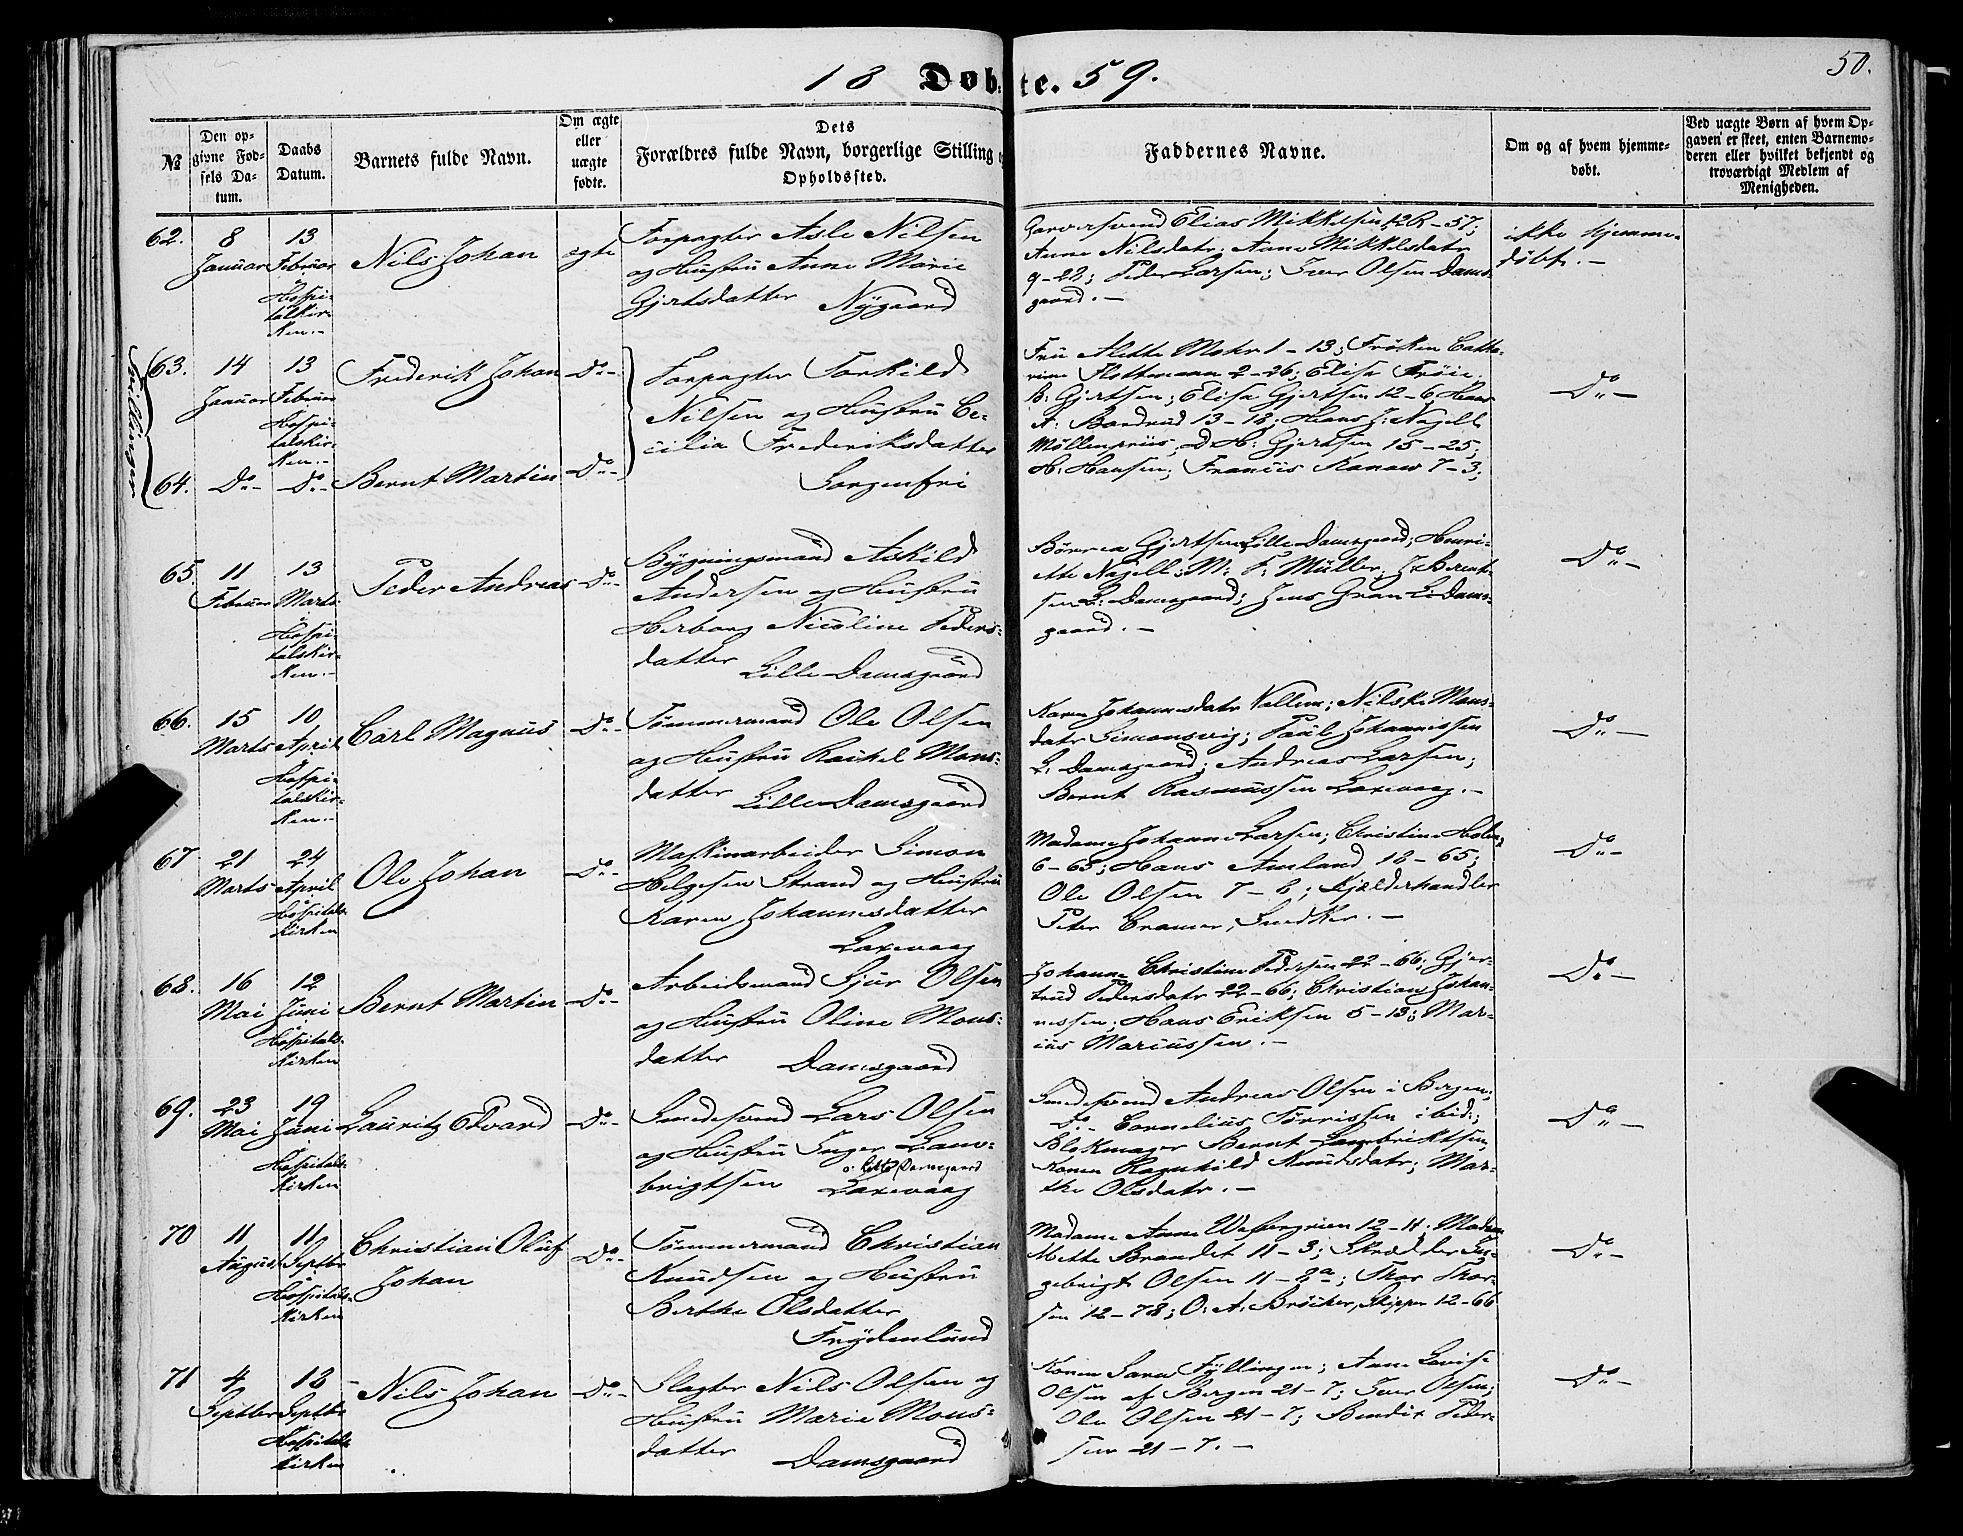 18 Døbte. 59.
50.
№
Den opgivne Fødsels Datum.
Daabs Datum.
Barnets fulde Navn.
Om ægte eller uægte fødte.
Dets Forældres fulde Navn, borgerlige Stilling og Opholdssted.
Faddernes Navne.
Om og af hvem hjemmedøbt.
Ved uægte Børn af hvem Opgaven er skeet, enten Barnemoderen eller hvilket bekjendt og troværdigt Medlem af Menigheden.
62.
8
Januar
13
Februar
Hospi-
talskir-
ken.-
Nils Johan
ægte
Forpagter Asle Nilsen
og Hustru Anne Marie
Gjertsdatter Nygaard
Garversvend Elias Mikkelsen, 12R-57;
Anne Nilsdatr; Anne Mikkelsdatr
9-22; Peder Larsen; Iver Olsen Dams-
gaard.-
ikke hjemme-
døbt.-
Tvillinger
63.
14
Januar
13
Februar
Hospi-
talskir-
ken.-
Frederik Johan
Do-
Forpagter Torkild
Nilsen og Hustru Ce-
cilia Frederiksdatter
Sorgenfri
Fru Alette Mohr 1-13; Frøken Catha-
rine Flottmann 2-26; Elisa Trøie
B: Gjertsen; Elisa Gjertsen 12-6; Hans
A: Bardrud 13-18; Hans J: Nagell
Møllenpriis, D H: Gjertsen 15-25;
H: Hansen; Francis Kanaw 7-3;
Do-
64.
Do-
Do-
Bernt Martin
Do-
65.
11
Februar
13
Marts
Hospi-
talskir-
ken.-
Peder Andreas
Do-
Bygningsmand Askild
Andersen og Hustru
Herborg Nicoline Peders-
datter Lille Damsgaard
Børrea Gjertsen Lille Damsgaard; Henri-
ette Nagell; M: F: Müller; J: Bernt-
sen L: Damsgaard; Jens Gran L: Dams-
gaard.-
Do-
66.
15
Marts
10
April
Hospi-
talskir-
ken.-
Carl Magnus
Do-
Tømmermand Ole Olsen
og Hustru Rakel Mons-
datter Lille Damsgaard
Karen Johannesdatr Vallem; Nilske Mons-
datr Simonsvig; Paul Johannissen
L: Damsgaard; Andreas Larsen;
Bernt Rasmussen Laxevaag.-
Do-
67
21
Marts
24
April
Hospitals-
kirken
Ole Johan
Do-
Maskinarbeider Simon
Helgesen Strand og Hustru
Karen Johannesdatter
Laxevaag
Madame Johanne Larsen; Christine Holm,
6-65; Hans Amland 18-65;
Ole Olsen 7-6; Kjælderhandler
Peter Cramer, Snedker.-
Do-
68.
16
Mai
12
Juni
Hospitals-
kirken
Bernt Martin
Do-
Arbeidsmand Sjur Olsen
og Hustru Oline Mons-
datter Damsgaard
Johanne Christine Pedersen 22-66; Gjer-
trud Pedersdatr 22-66; Christian Johan-
nessen; Hans Eriksen 5-13; Mar-
ius Mariussen.-
Do-
69.
23
Mai
19
Juni
Hospitals-
kirken
Lauritz Edvard
Do-
Smedesvend Lars Olsen
og Hustru Inger Lam-
brigtsen
o: Lille Damsgaard
Laxevaag
Smedesvend Andreas Olsen i Bergen;
Do- Cornelius Tørrissen ibid;
Blokmager Bernt Lambriktsen,
Konen Ragnhild Knudsdatr; Mar-
the Olsdatr.-
Do-
70
11
August
11
Septbr
Hospitals-
kirken
Christian Oluf
Johan
Do-
Tømmermand Christian
Knudsen og Hustru
Berthe Olsdatter
Frydenlund
Madame Anne Westergreen 12-11. Madam
Mette Brandet 11-3; Skrædder In-
gebrigt Olsen 11-2a; Thor Thor-
sen 12-78; O: A: Brøcker, Skipper 12-66
Do-
71
4
Septbr
18
Septbr
Hospitals-
kirken
Nils Johan
Do-
Slagter Nils Olsen og
Hustru Marie Mons-
datter Damsgaard
Konen Sara Fyllingen; Anne Lovise
Olsen af Bergen 21-7; Iver Olsen;
Ole Olsen 21-7; Bendix Peder-
sen 21-7.-
Do-